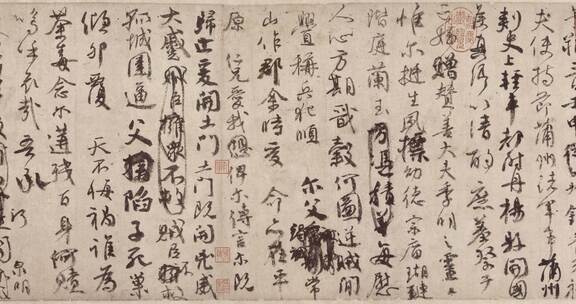 夫使持節蒲州諸軍事蒲州
刺史上輕車都尉丹楊縣開國
侯真卿以清酌庶羞祭于
亡姪贈贊善大夫季明之靈
惟爾挺生夙標幼德宗廟瑚璉
階庭蘭玉方憑積善每慰
人心方期戩穀何圖逆賊閒
釁稱兵犯順 爾父竭誠常
山作郡余時受 命亦在平
原 仁兄愛我俾爾傳言爾既
歸止爰開土門土門既開凶威
大蹙賊臣擁眾不救賊臣不救
孤城圍逼父陷子死巢
傾卵覆 天不悔禍誰為
荼毒念爾遘殘百身何贖
嗚呼哀哉吾承